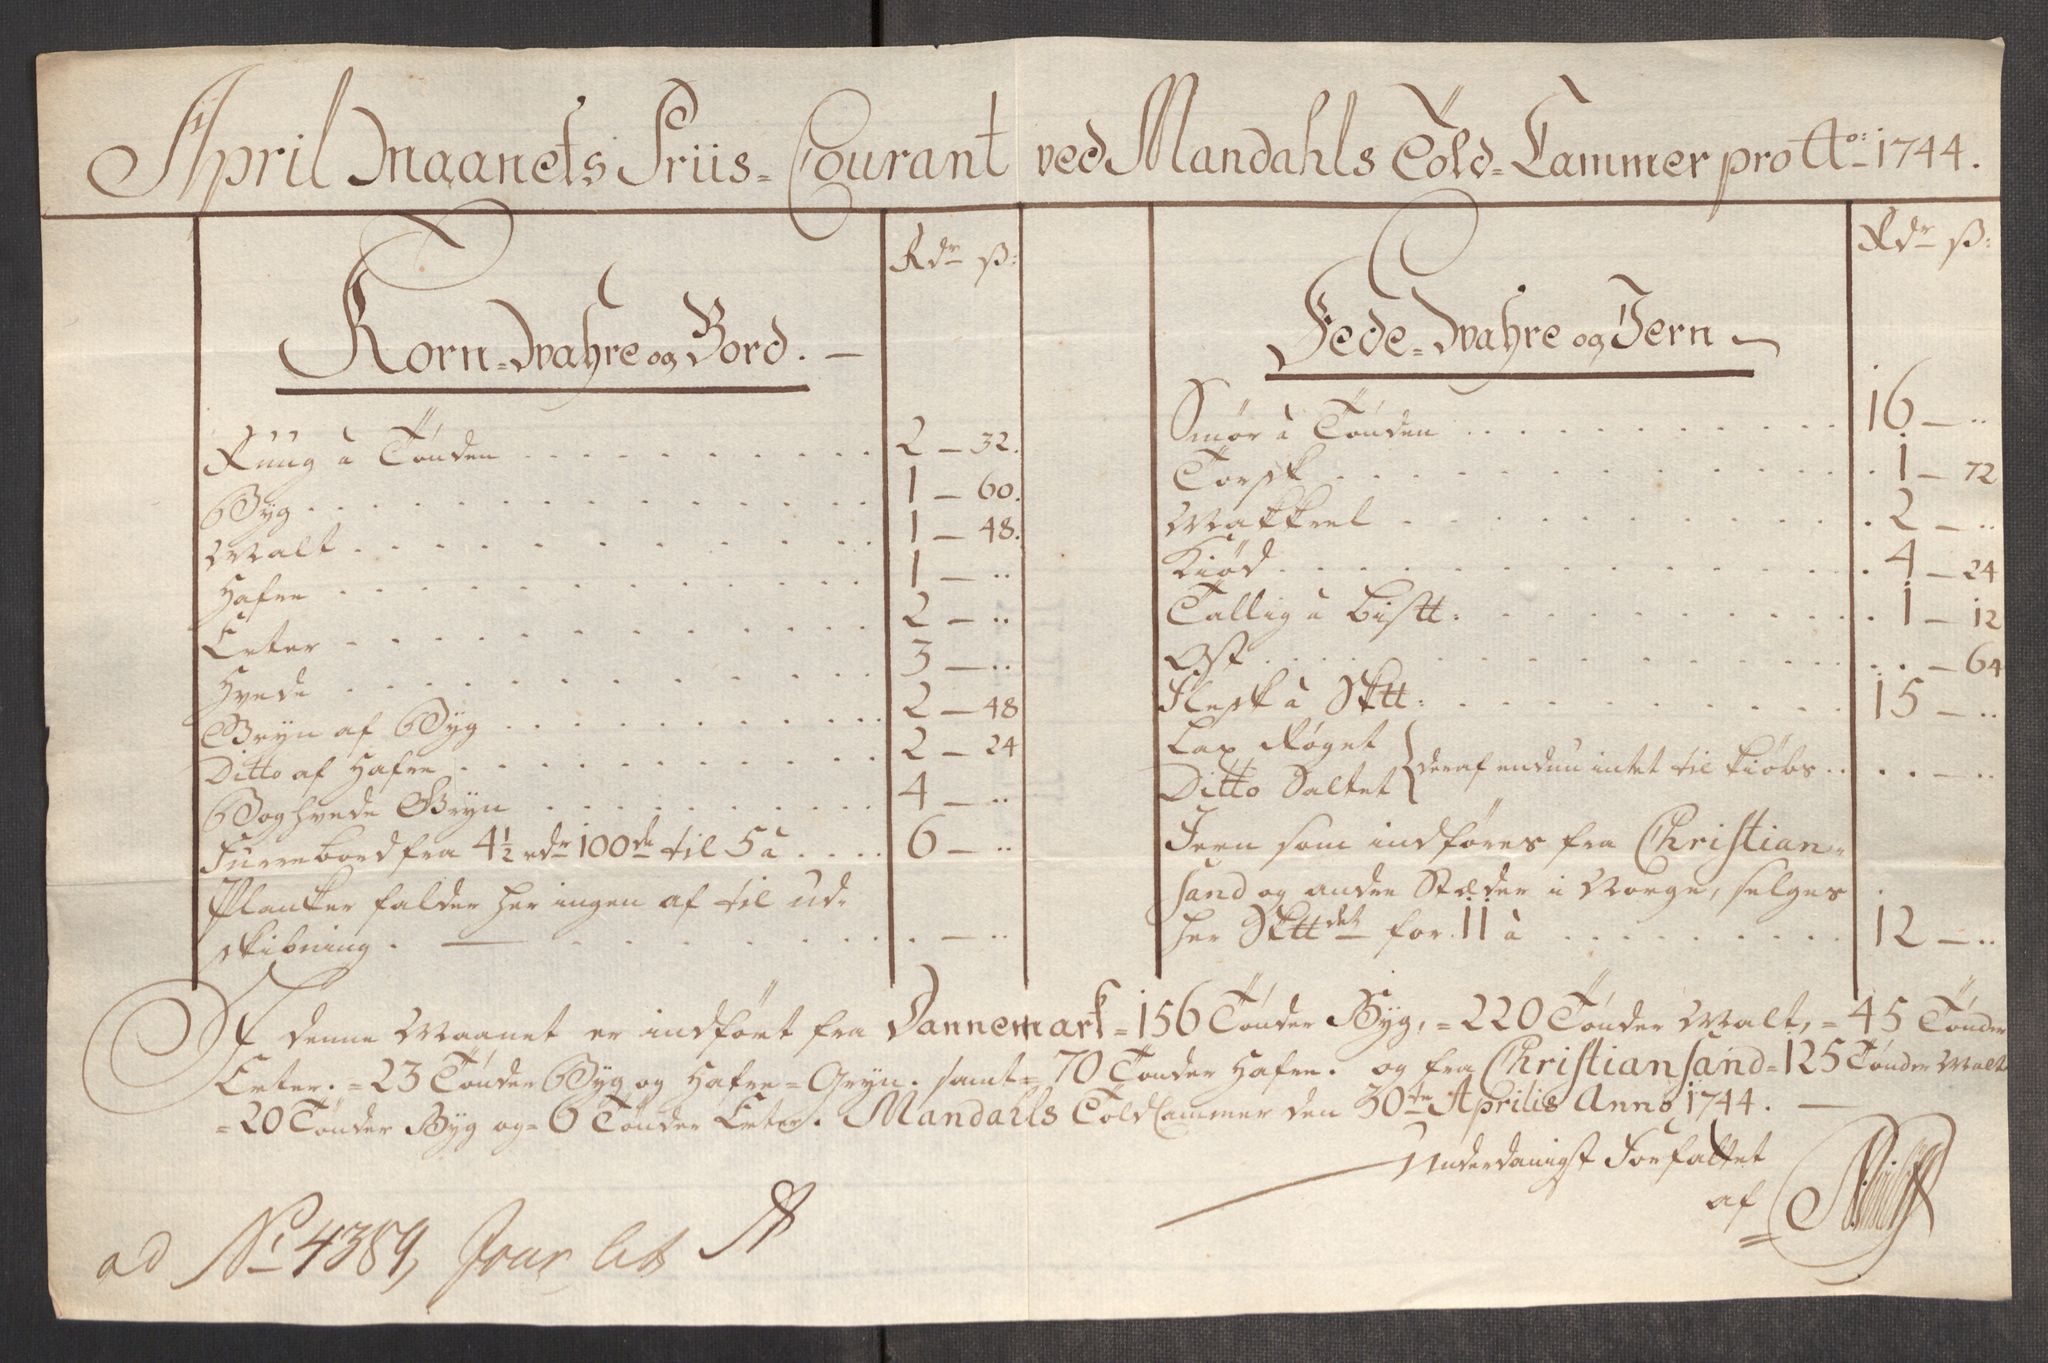 April Maanets Priis=Courant ved Mandahls Told=Cammer pro Ao: 1744.
Rdr ß:
Korn=Wahre og Bord. —
Rüüg à Tønden . . . . . 2 — 32.
Byg . . . . . 1 — 60.
Malt . . . . . 1 — 48.
Hafre . . . . . 1 — ..
Erter . . . . . 2 — ..
Hvede . . . . . 3 — ..
Gryn af Byg . . . . . 2 — 48
Ditto af Hafre . . . . . 2 — 24
Boghvede Gryn . . . . . 4 — ..
Furrebord fra 4½ rdr 100de til 5 à . . . . 6 — ..
Planker falder her ingen af til ud-
skibning. — . . . . . — ..
Rdr ß:
Fede=Wahre og Jern —
Smør à Tønden . . . . . 16 — ..
Torsk . . . . . 1 — 72
Makkrel . . . . . 2 — ..
Kiød . . . . . 4 — 24
Tallig à Bistt: . . . . . 1 — 12
Ost . . . . . — 64
Flesk à Sktt: . . . . . 15 — ..
Lax Røget
Ditto Saltet } deraf endnu intet til kiøbs . . . . — ..
Jern som indføres fra Christian=
sand og andre Stæder i Norge, selges
her Skttdet for 11 à . . . . . 12 — ..
I denne Maanet er indført fra Dannemark = 156 Tønder Byg, = 220 Tønder Malt, = 45 Tønder
Erter. = 23 Tønder Byg og Hafre=Gryn. samt = 70 Tønder Hafre. og fra Christiansand = 125 Tønder Malt
= 20 Tønder Byg og = 6 Tønder Erter. Mandahls Told Cammer den 30te Aprilis Anno 1744. —
Underdanigst Forfattet
af
ad No 4389, Jour lit A